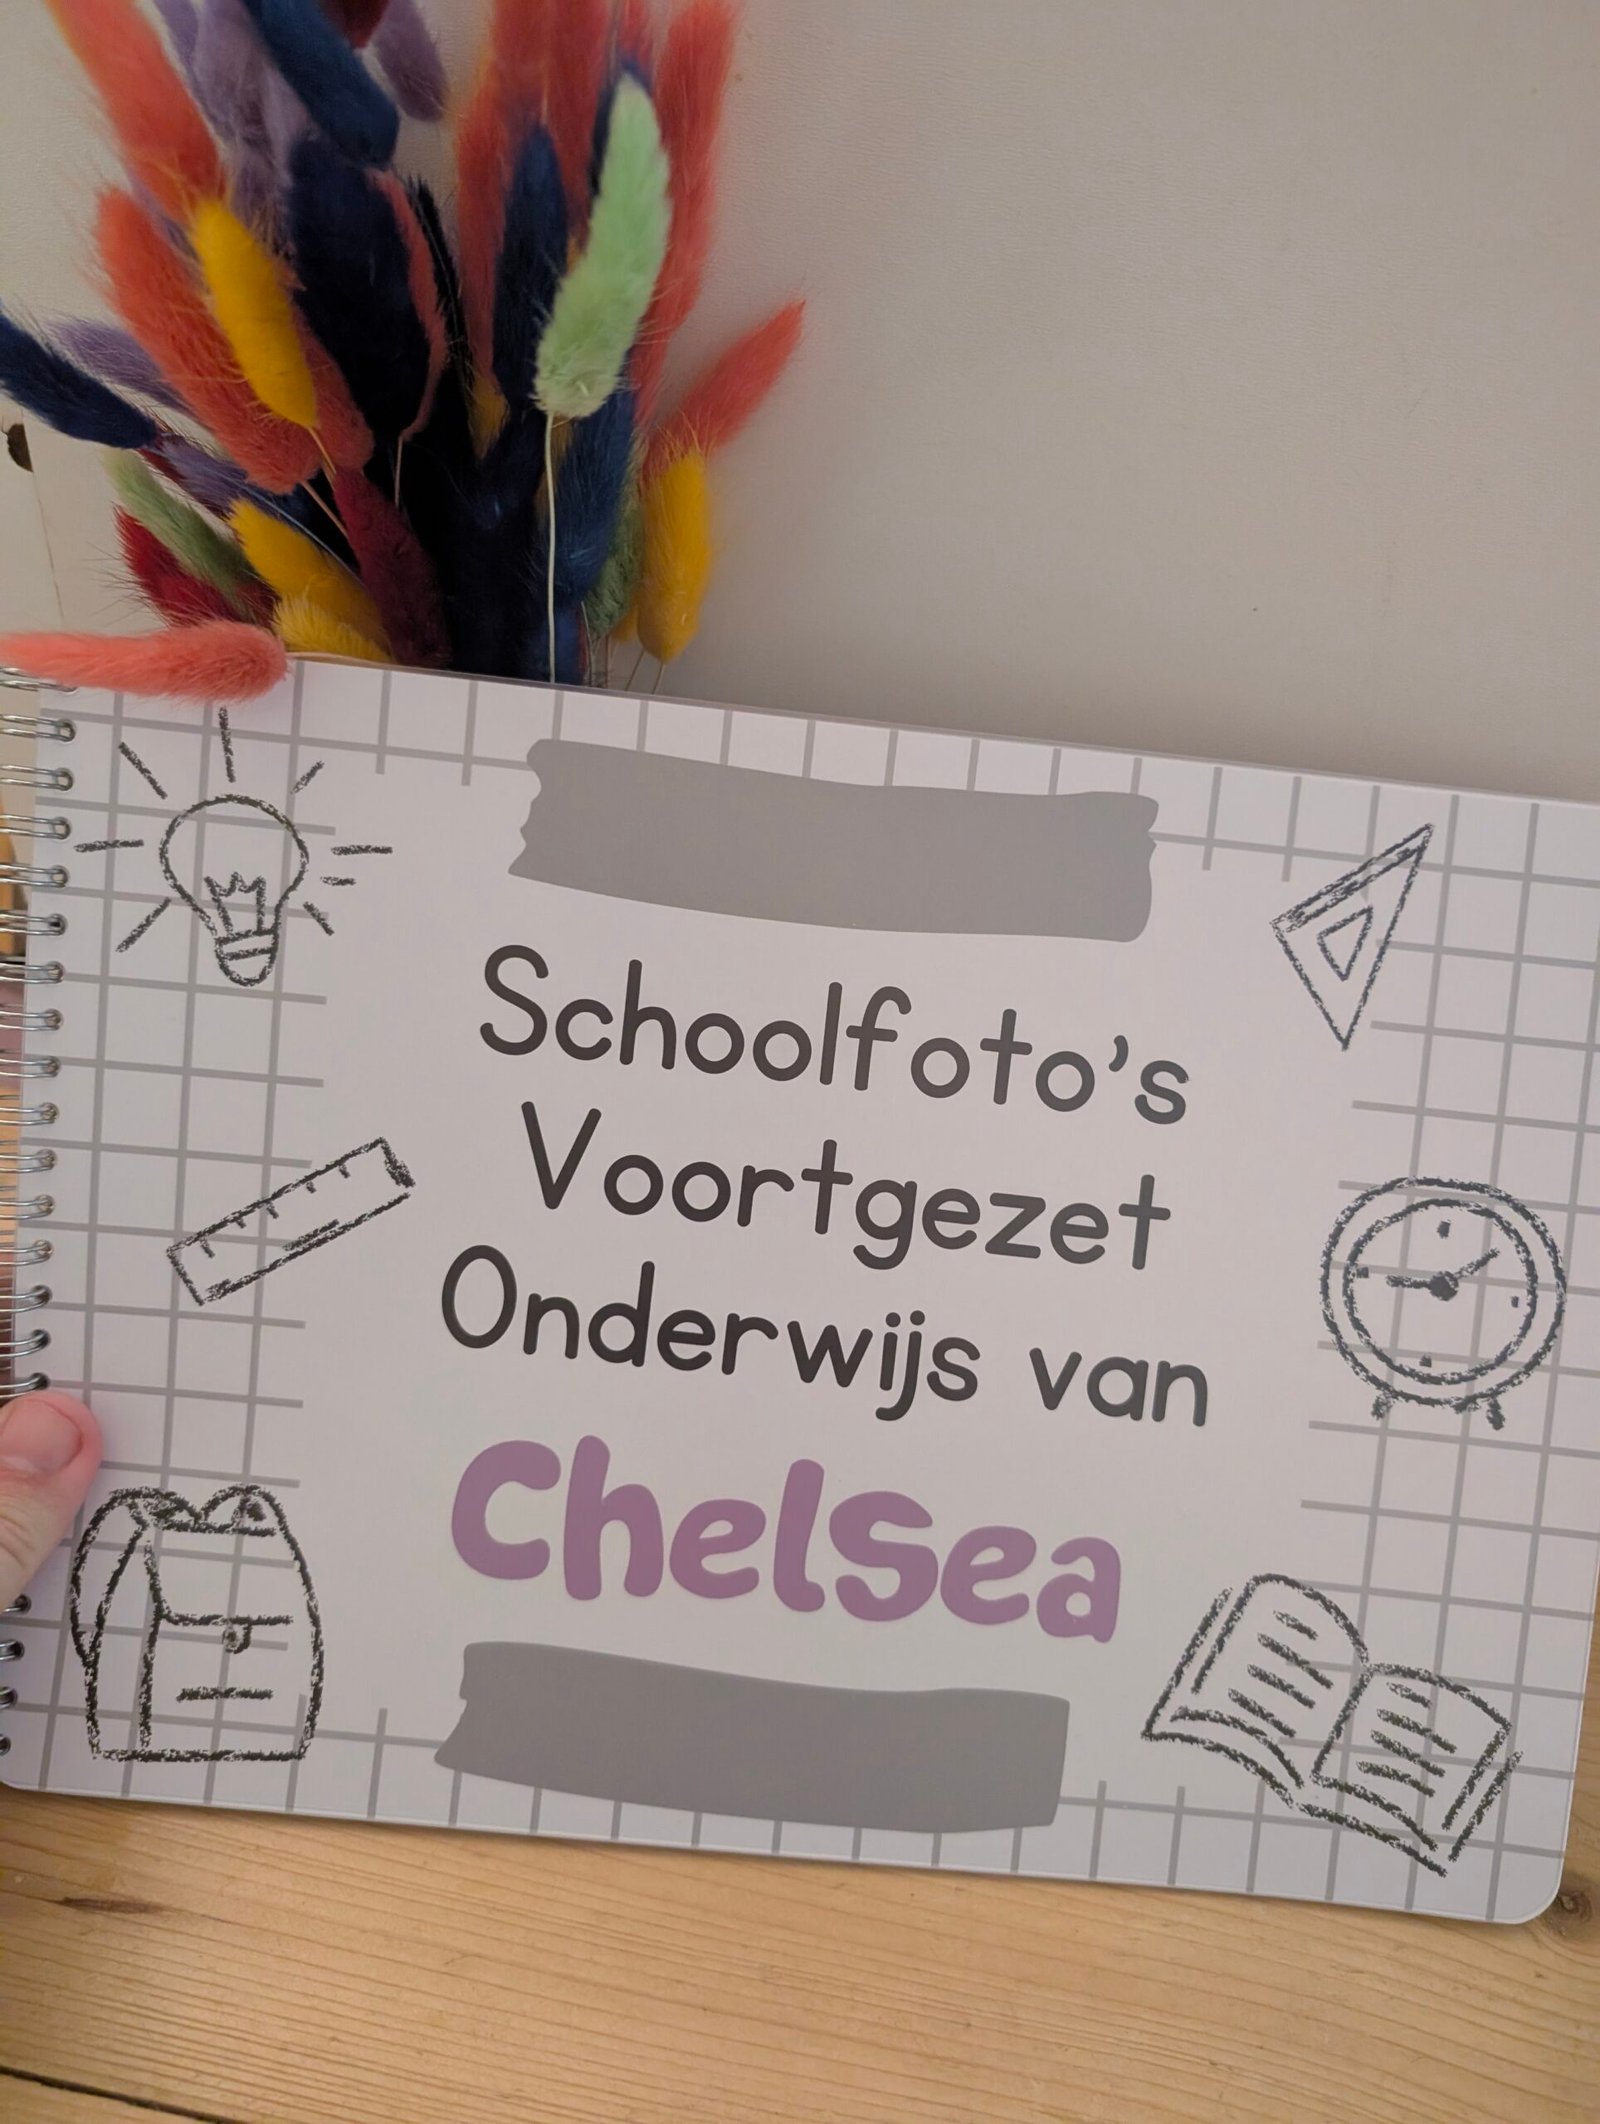 Schoolfoto's
Voortgezet
Onderwijs van
Chelsea